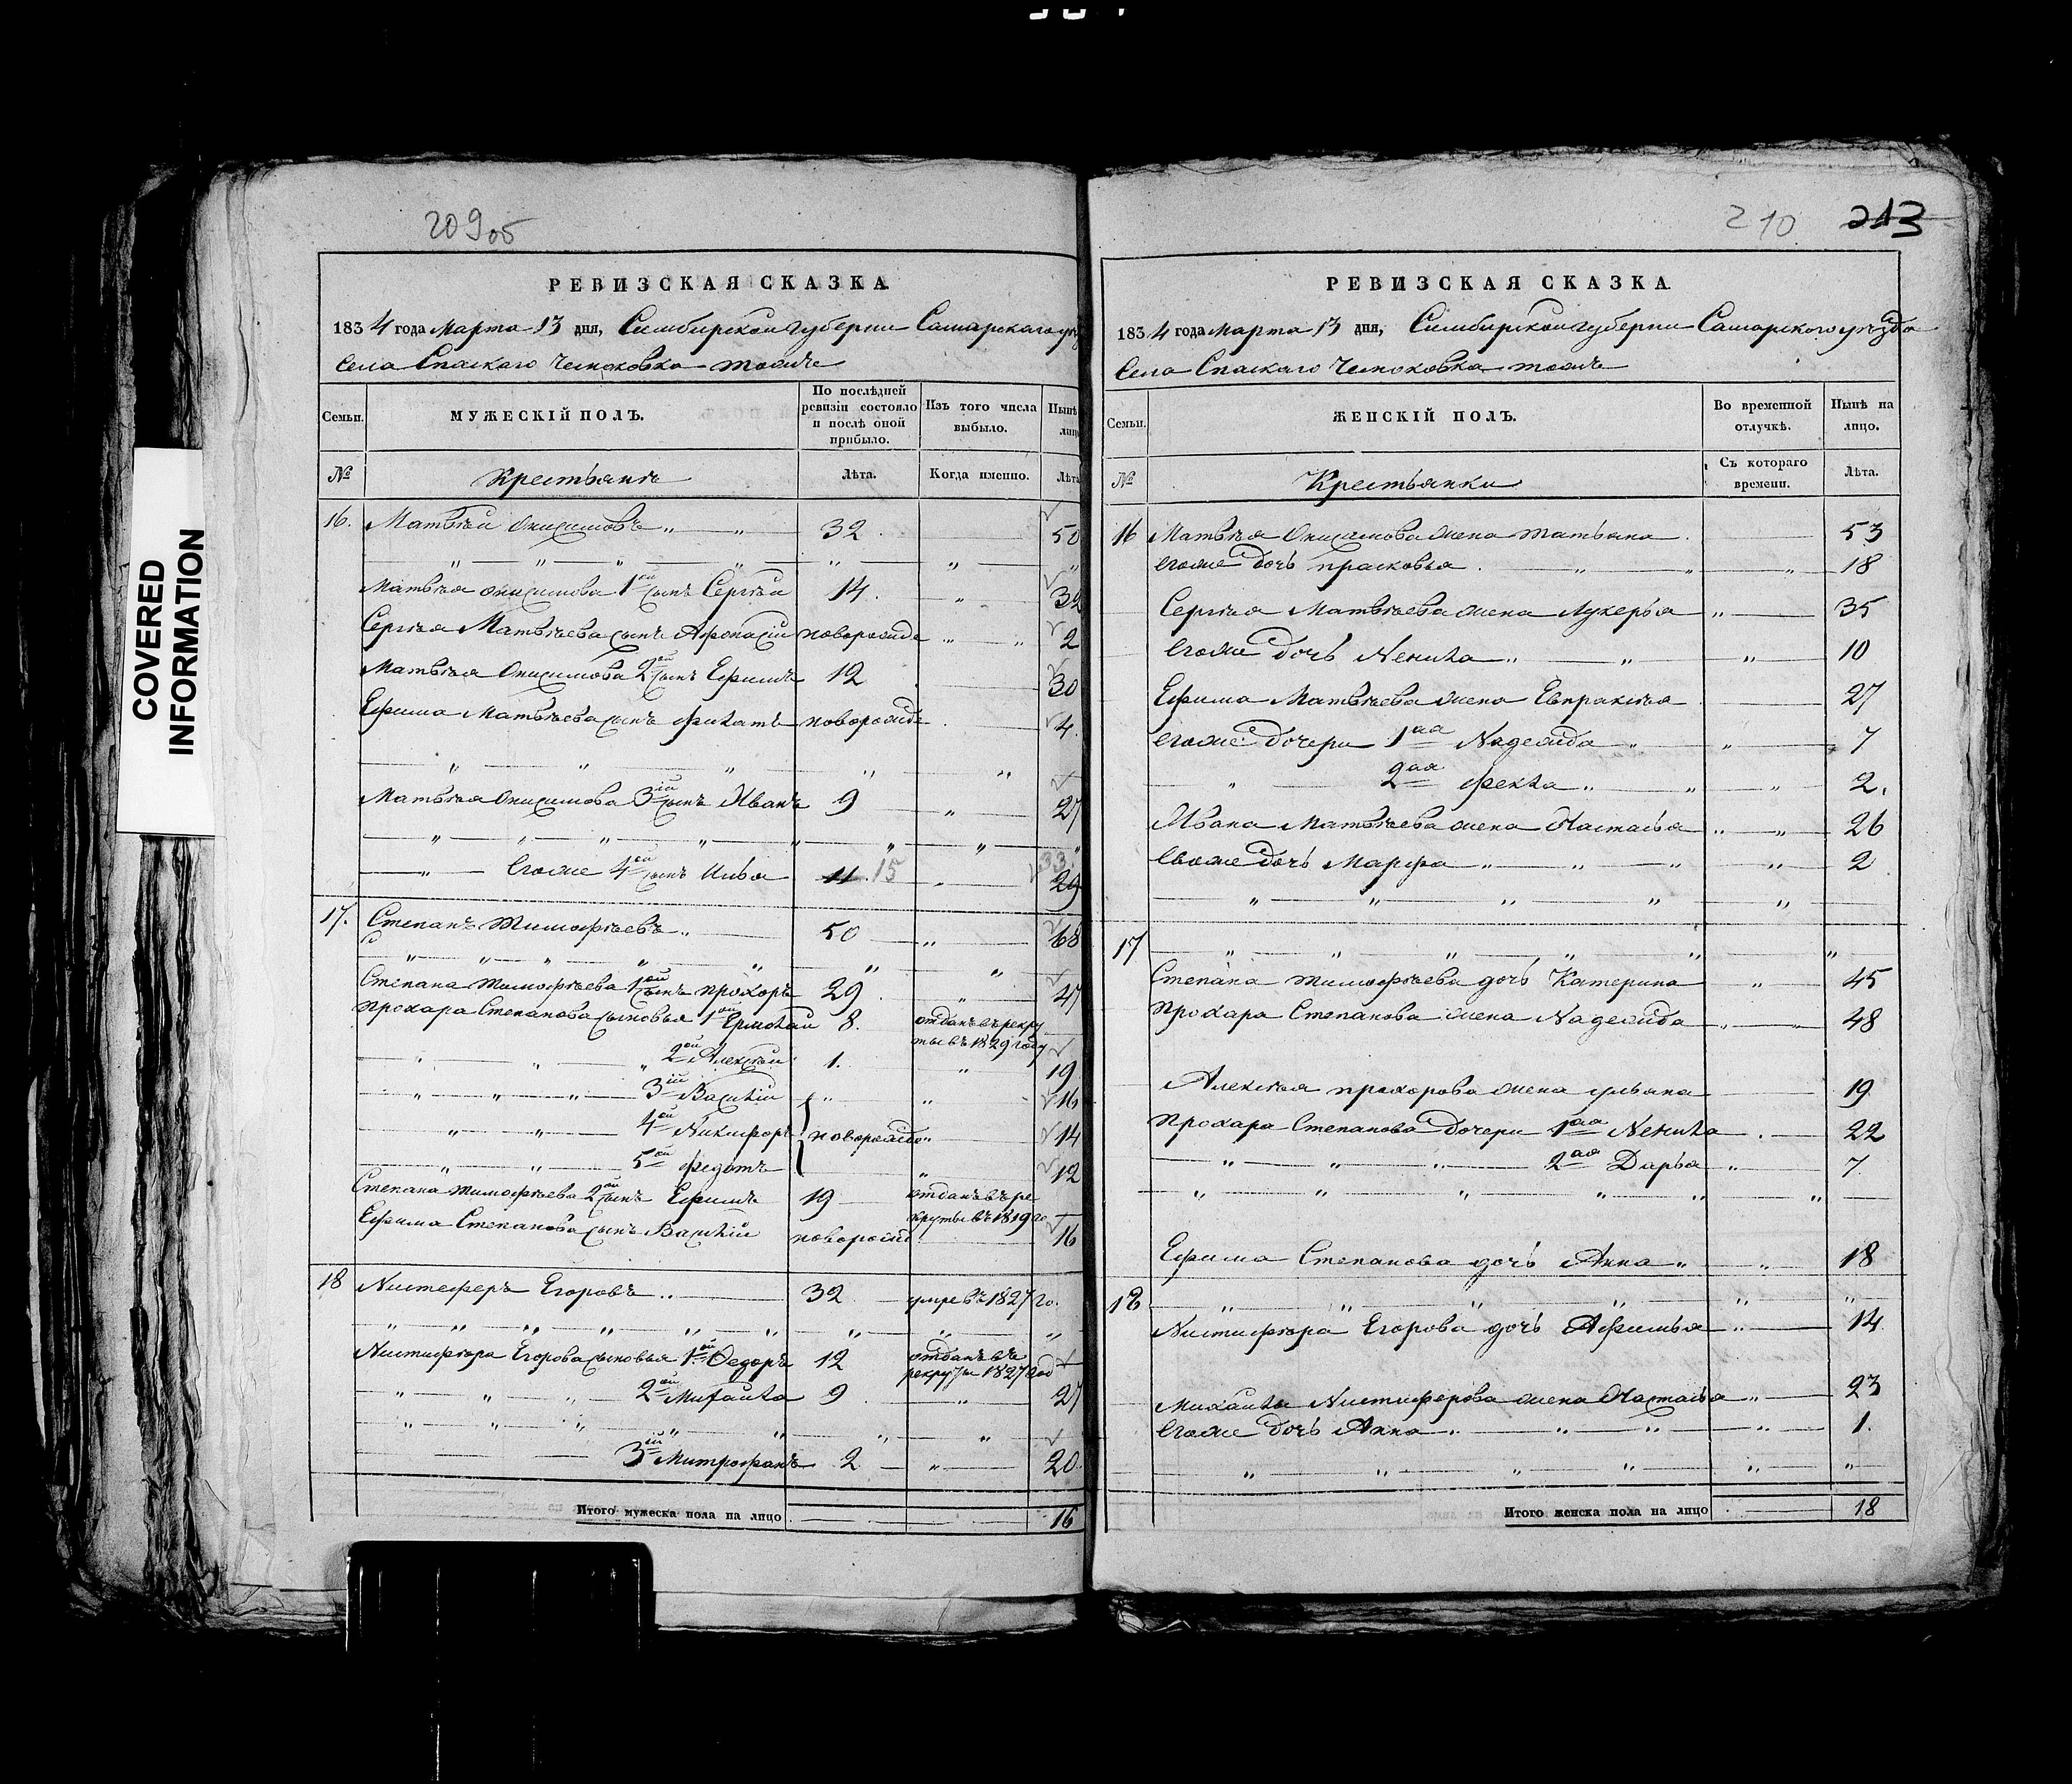 209об
РЕВИЗСКАЯ СКАЗКА
1834 года Марта 13 дня, Симбирской губернии Самарского уез
Села Спаскаго Чесноковка тожъ
Семьи.
МУЖЕСКІЙ ПОЛЪ.
По послѣдней ревизіи состояло и послѣ оной прибыло.
Изъ того числа выбыло.
Нынѣ лицо
№
Крестьянъ
Лѣта.
Когда именно.
Лѣта
16. Матвѣй Онисимовъ 32 50
Матвѣя Онисимова 1ой сынъ Сергѣй 14. 32
Сергѣя Матвѣева сынъ Афонасій новорожде 2
Матвѣя Онисимова 2ой сынъ Ефимъ 12 30
Ефима Матвѣева сынъ Филатъ новорожде 4.
Матвѣя Онисимова 3ій сынъ Иванъ 9 27
Егоже 4ой сынъ Илья 11. 15 33 29
17. Степанъ Тимофѣевъ 50 68
Степана Тимофѣева 1ой сынъ Прохоръ 29 47
Прохара Степанова сыновья 1ой Ермолай 8. отданъ въ рекру
ты въ 1829 году
2ой Алексѣй 1. 19
3ій Василій 16
4ой Никифоръ новорожде 14
5ой Федотъ 12
Степана Тимофѣева 2ой сынъ Ефимъ 19 отданъ въ ре
круты въ 1819 го
Ефима Степанова сынъ Василій новорожд 16
18 Никифоръ Егоровъ 32 умре въ 1827 го.
Егорова сыновья 1ой Федоръ 12 отданъ въ
рекруты 1827 год
2ой Михайла 9 27
3ій Митрофанъ 2 20.
Итого мужеска пола на лицо 16
210 213
РЕВИЗСКАЯ СКАЗКА
1834 года Марта 13 дня, Симбирской губернии Самарского уѣзда
Села Спаскаго Чесноковка тожъ
Семьи.
ЖЕНСКІЙ ПОЛЪ.
Во временной отлучкѣ.
Нынѣ на лицо.
№
Крестьянки
Съ котораго времени.
Лѣта.
16 Матвѣя Онисимова жена Татьяна 53
Егоже дочь Прасковья 18
Сергѣя Матвѣева жена Лукерья 35
Егоже дочь Ненила 10
Ефима Матвѣева жена Евпраксѣя 27
Егоже дочери 1ая Надежда 7
2ая Фекла 2.
Ивана Матвѣева жена Настасья 26
Егоже дочь Марфа 2
17
Степана Тимофѣева дочь Катерина 45
Прохара Степанова жена Надежда 48
Алексѣя Прохорова жена Ульяна 19
Прохара Степанова дочери 1ая Ненила 22
2ая Дарья 7.
Ефима Степанова дочь Анна 18
18
Егорова дочь Афимья 14
Михайлы жена Настасья 23
Егоже дочь Анна 1.
Итого женска пола на лицо 18
COVERED
INFORMATION